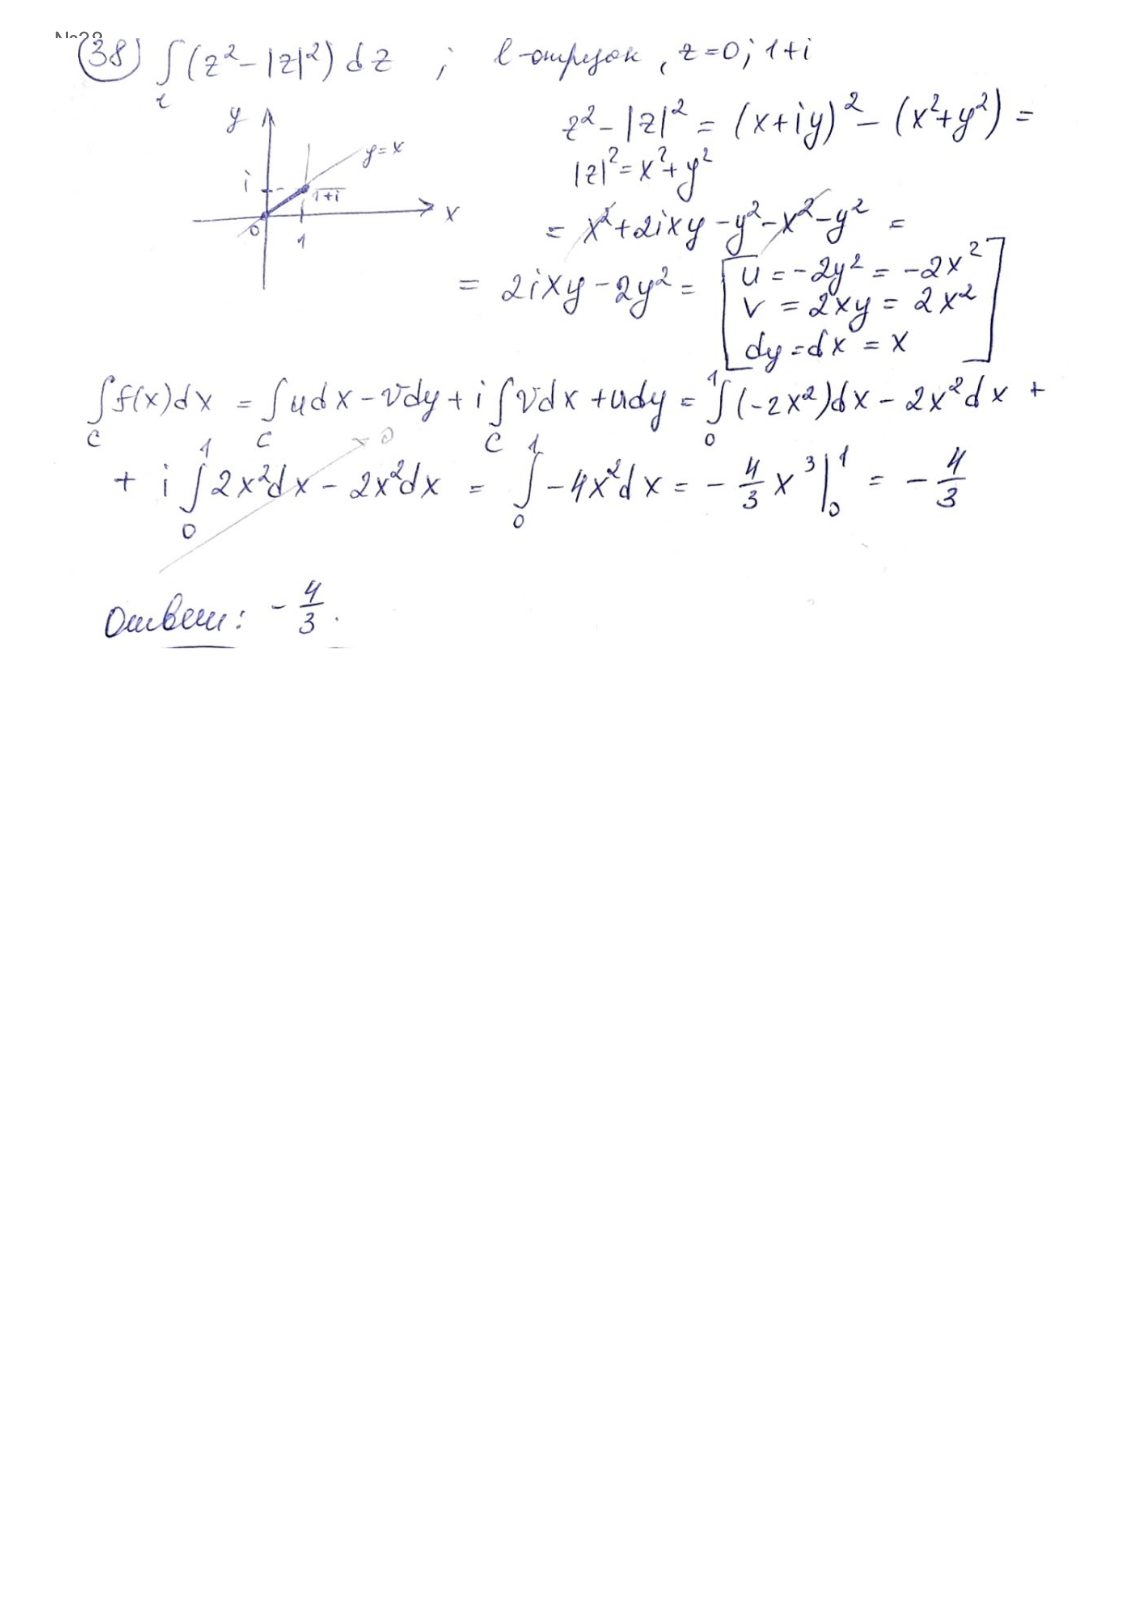 №38
(38) ∫_l (z² − |z|²) dz ; l-отрезок, z=0; 1+i
y
z² − |z|² = (x+iy)² − (x²+y²) =
y=x
|z|² = x²+y²
i
1+i
x
0
1
= x²+2ixy −y²−x²−y² =
= 2ixy − 2y² = [ u = −2y² = −2x²
v = 2xy = 2x²
dy = dx = x ]
∫_C f(x)dx = ∫_C udx − vdy + i ∫_C vdx + udy = ∫_0^1 (−2x²)dx − 2x²dx +
+ i ∫_0^1 2x²dx − 2x²dx = ∫_0^1 −4x²dx = −4/3 x³ |_0^1 = −4/3
Ответ: −4/3.